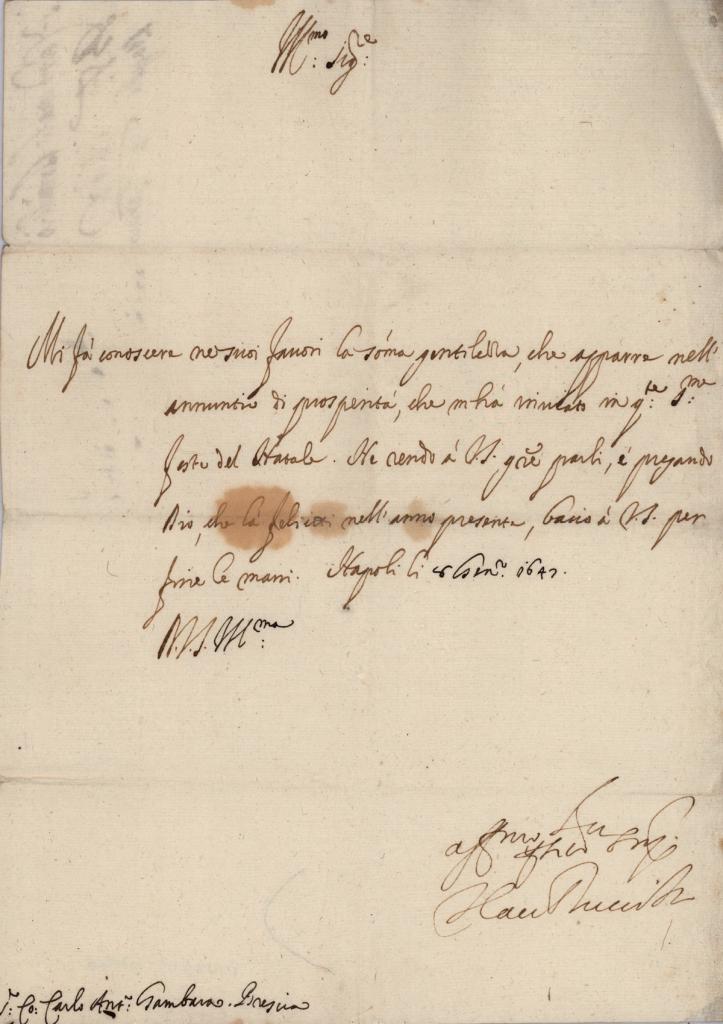 Ill:mo Sig:re
Mi fà conoscere ne suoi favori la sóma gentilezza, che apparve nell'
annuntio di prosperità, che m'hà inviato in q:te S:me
feste del Natale. Ne rendo à V.S. grẽ pari, è pregando
Dio, che la feliciti nell'anno presente, bacio à V.S. per
fine le mani. Napoli li 8 Gen:o 1647.
D.V.S. Ill:ma
aff:mo
S:r Co: Carlo Ant:o Gambara. Brescia